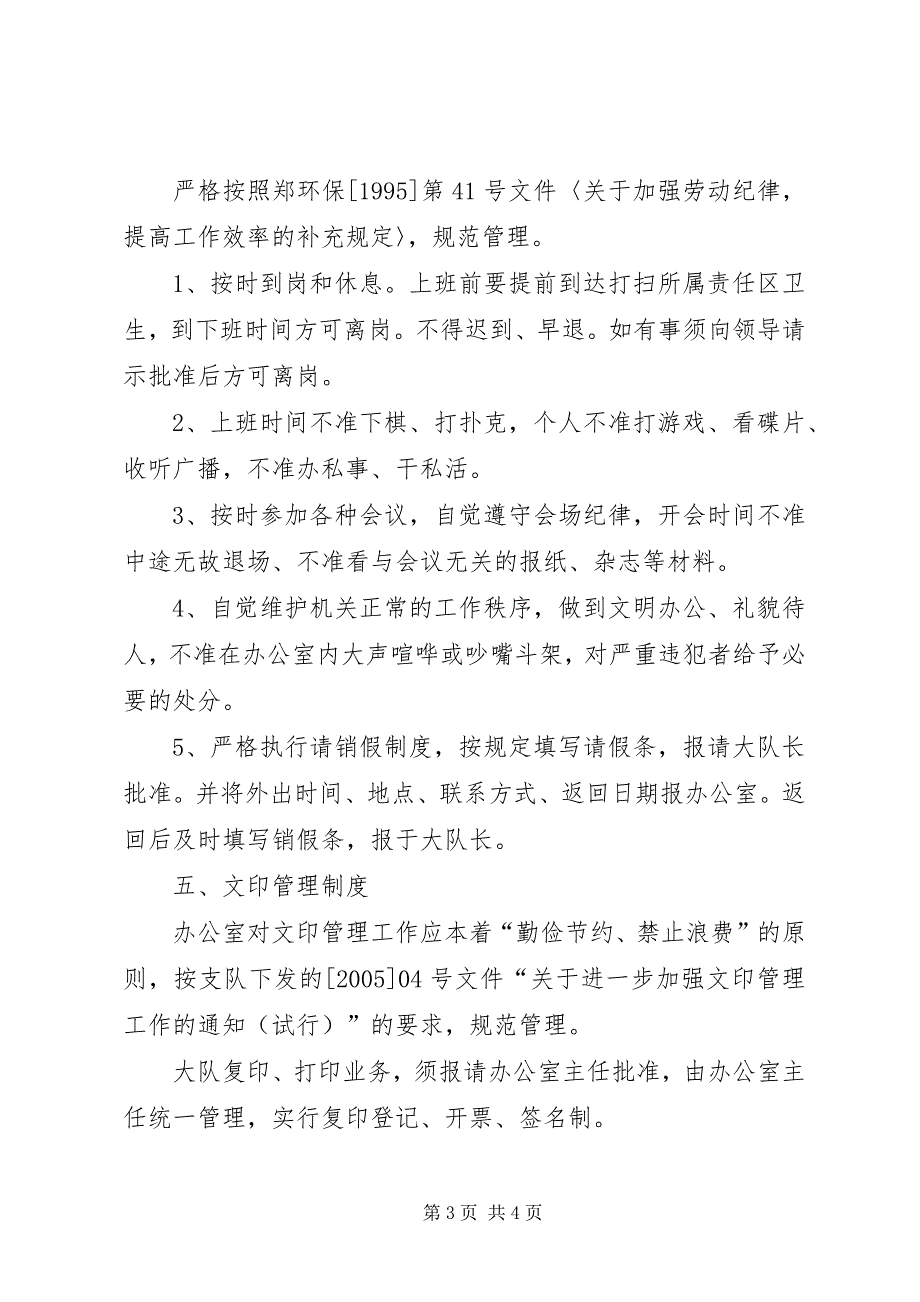 严格按照郑环保[1995]第 41 号文件〈关于加强劳动纪律，
提高工作效率的补充规定〉，规范管理。
1、按时到岗和休息。上班前要提前到达打扫所属责任区卫
生，到下班时间方可离岗。不得迟到、早退。如有事须向领导请
示批准后方可离岗。
2、上班时间不准下棋、打扑克，个人不准打游戏、看碟片、
收听广播，不准办私事、干私活。
3、按时参加各种会议，自觉遵守会场纪律，开会时间不准
中途无故退场、不准看与会议无关的报纸、杂志等材料。
4、自觉维护机关正常的工作秩序，做到文明办公、礼貌待
人，不准在办公室内大声喧哗或吵嘴斗架，对严重违犯者给予必
要的处分。
5、严格执行请销假制度，按规定填写请假条，报请大队长
批准。并将外出时间、地点、联系方式、返回日期报办公室。返
回后及时填写销假条，报于大队长。
五、文印管理制度
办公室对文印管理工作应本着“勤俭节约、禁止浪费”的原
则，按支队下发的[2005]04 号文件“关于进一步加强文印管理
工作的通知（试行）”的要求，规范管理。
大队复印、打印业务，须报请办公室主任批准，由办公室主
任统一管理，实行复印登记、开票、签名制。
第 3 页 共 4 页